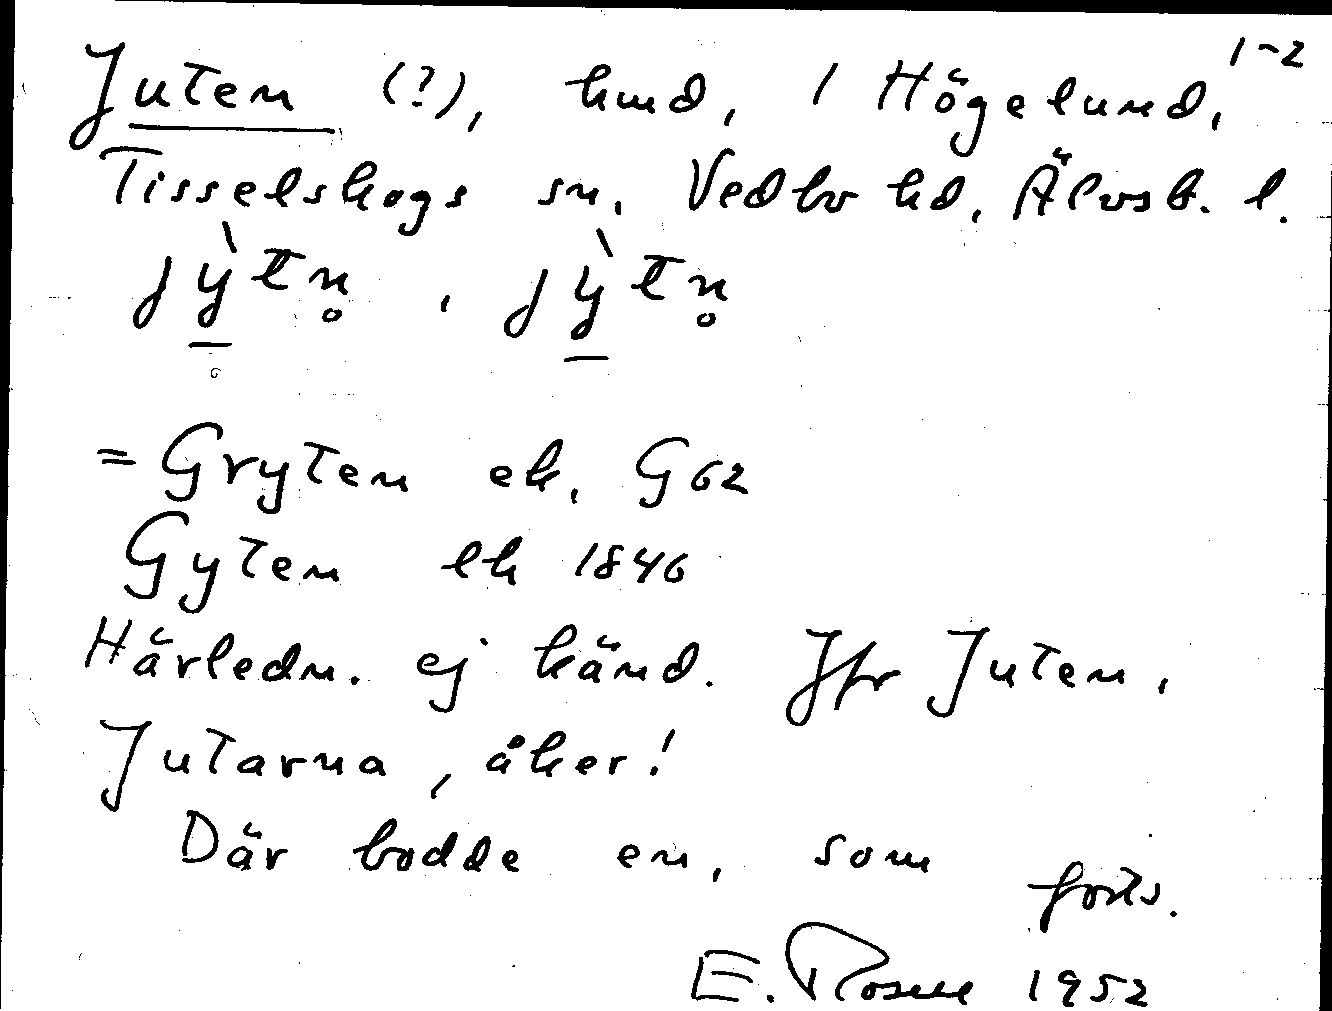 1-2
Juten (?), hmd, i Högelund,
Tisselskogs sn, Vedbo hd, Älvsb. l.
jỳ̠tn̥ , jỳ̠tn̥
= Gryten ek. G62
Gyten ek 1846
Härledn. ej känd. Jfr Juten,
Jutarna, åker!
Där bodde en, som forts.
E. Rosell 1952